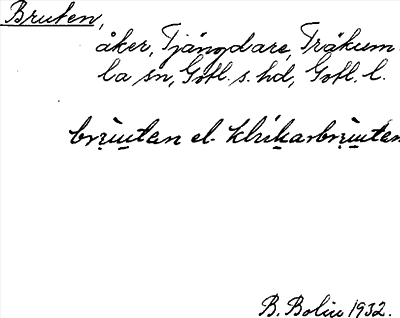 Bruten,
åker, Tjängdare, Träkum-
la sn, Gotl. s. hd, Gotl. l.
brùutan el. klìkarbrùutan
B. Bolin 1932.